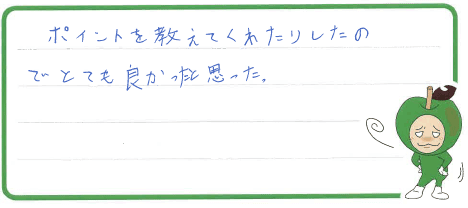 ポイントを教えてくれたりしたの
でとても良かったと思った。